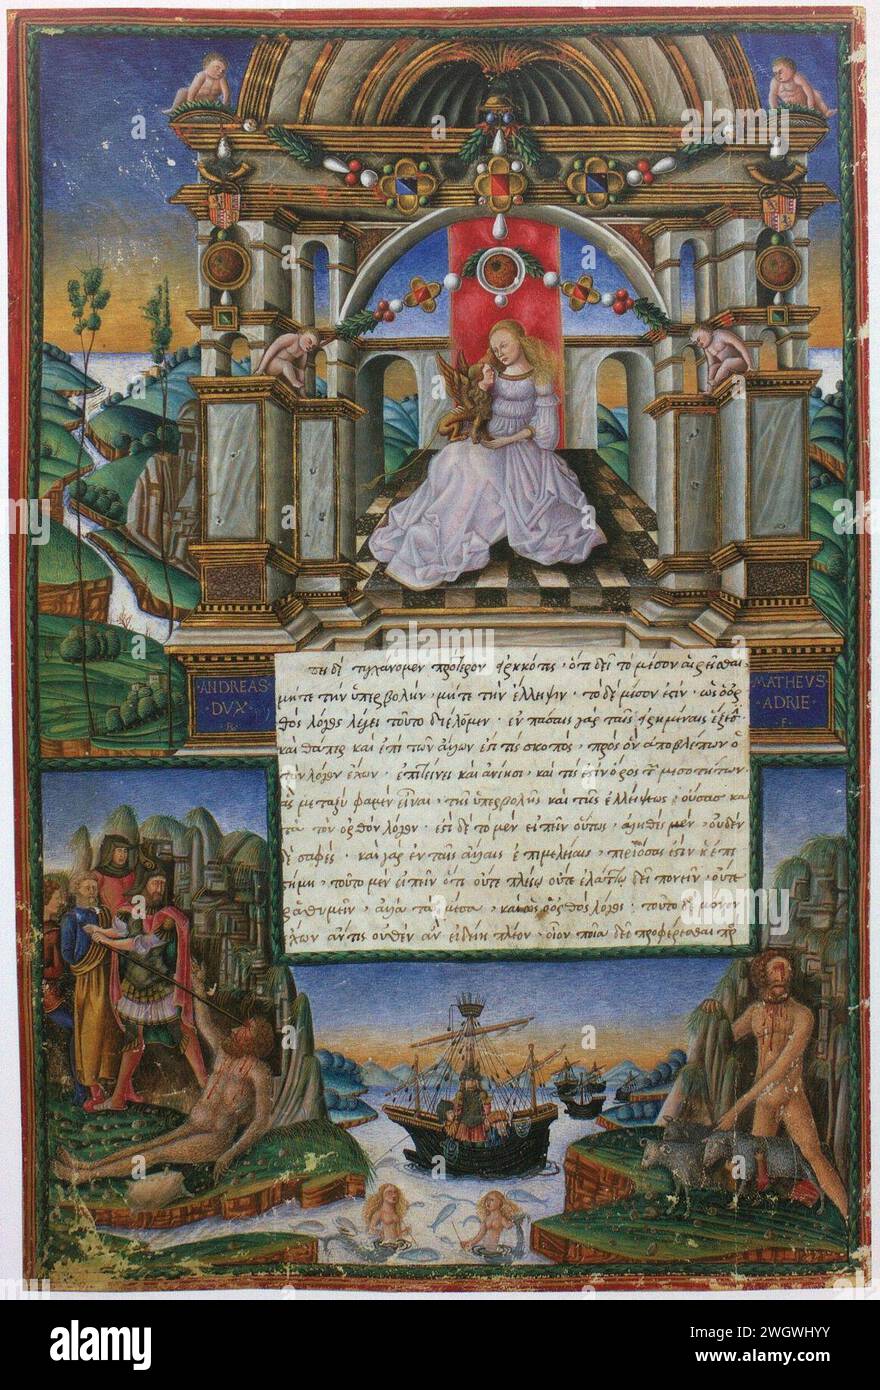 πεὶ δὲ τυγχάνομεν πρότερον εἰρηκότες · ὅτι δεῖ τὸ μέσον αἱρεῖσθαι
μήτε τὴν ὑπερβολὴν · μήτε τὴν ἔλλειψιν · τὸ δὲ μέσον ἐστὶν · ὡς ὁ ὀρ
θὸς λόγος λέγει τοῦτο διέλωμεν · ἐν πάσαις γὰρ ταῖς εἰρημέναις ἕξεσι
καθάπερ καὶ ἐπὶ τῶν ἄλλων ἐστί τις σκοπὸς · πρὸς ὃν ἀποβλέπων ὁ
τὸν λόγον ἔχων · ἐπιτείνει καὶ ἀνίησι · καὶ τις ἐστὶν ὅρος τῶν μεσοτήτων ·
ἃς μεταξύ φαμεν εἶναι · τῆς ὑπερβολῆς καὶ τῆς ἐλλείψεως · οὔσας κα
τὰ τὸν ὀρθὸν λόγον · ἔστι δὲ τὸ μὲν εἰπεῖν οὕτως · ἀληθὲς μὲν · οὐδὲν
δὲ σαφές · καὶ γὰρ ἐν ταῖς ἄλλαις ἐπιμελείαις · περὶ ὅσας ἐστὶν ἐπι
στήμη · τοῦτο μὲν εἰπεῖν ὅτι οὔτε πλείω οὔτε ἐλάττω δεῖ πονεῖν · οὔτε
ῥαθυμεῖν · ἀλλὰ τὰ μέσα · καὶ ὡς ὁ ὀρθὸς λόγος · τοῦτο δὲ μόνον
ἔχων ἄν τις οὐθὲν ἂν εἰδείη πλέον · οἷον ποῖα δεῖ προσφέρεσθαι πρὸς
·ANDREAS·
DVX·
·R·
MATHEVS
·ADRIE·
·F·
alamy
Image ID: 2WGWHYY
www.alamy.com